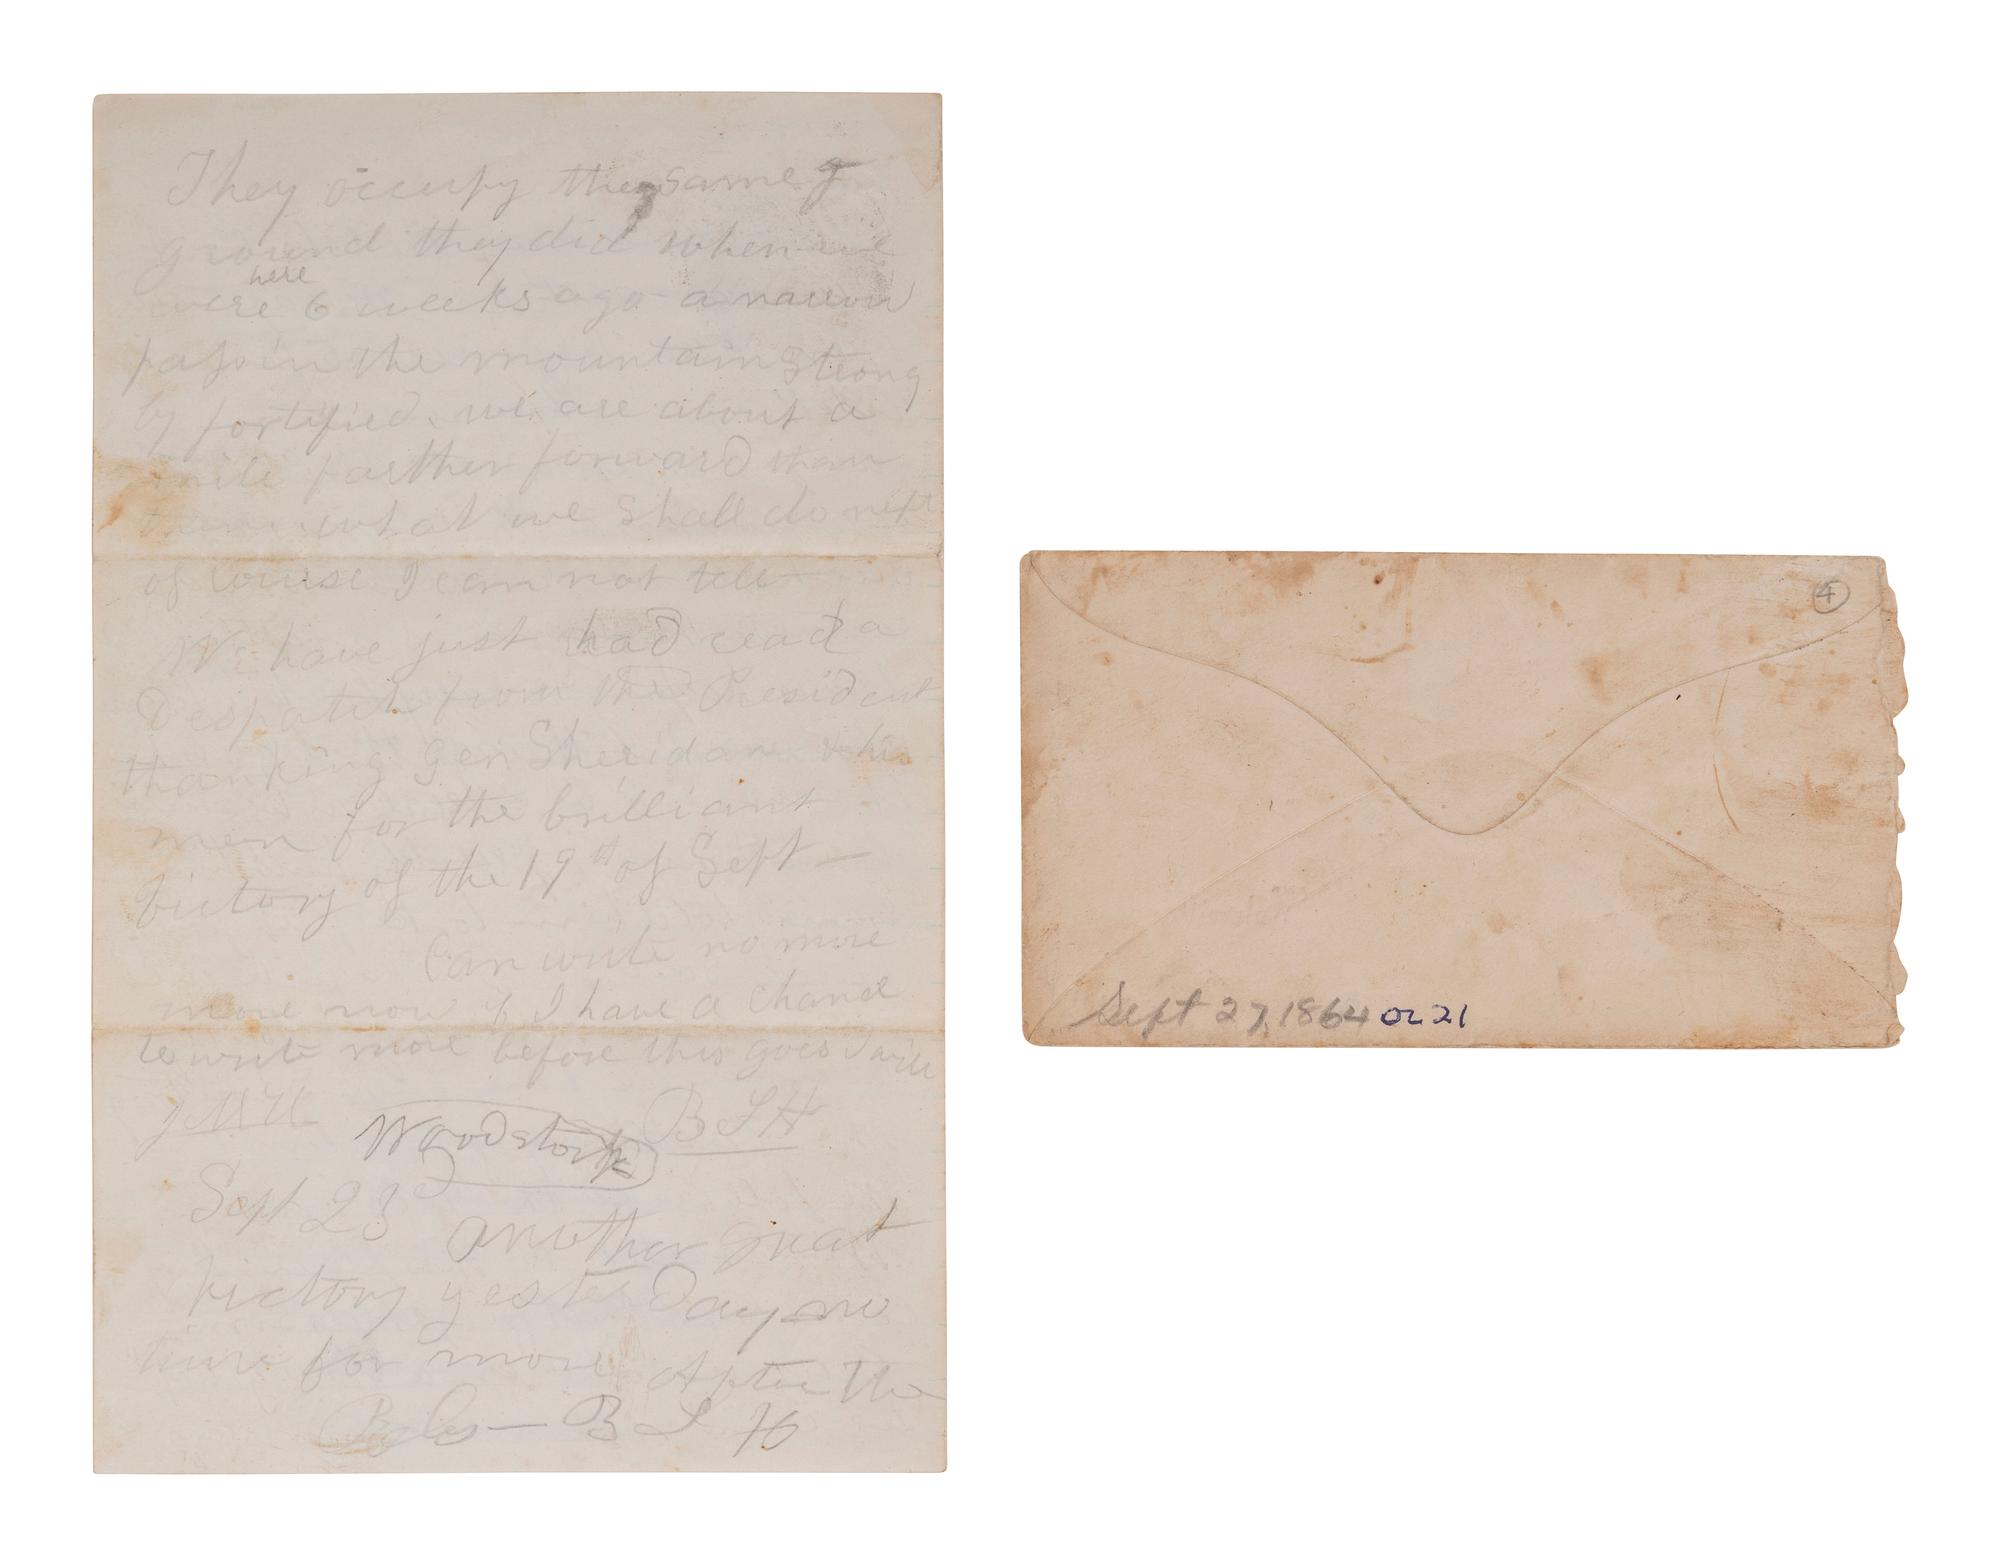 They occupy the same g
ground they did when we
here
were 6 weeks ago a narrow
pass in the mountain strong
ly fortified. we are about a
mile farther forward than
then what we shall do next
of course I can not tell
We have just had read a
Despatch from the President
thanking Gen Sheridan & his
men for the brilliant
victory of the 19th of Sept —
Can write no more
more now if I have a chance
to write more before this goes I will
B F H
Woodstock
Sept 23d another great
victory yesterday no
time for more After the
Rebs — B F H
4
Sept 27, 1864 or 21